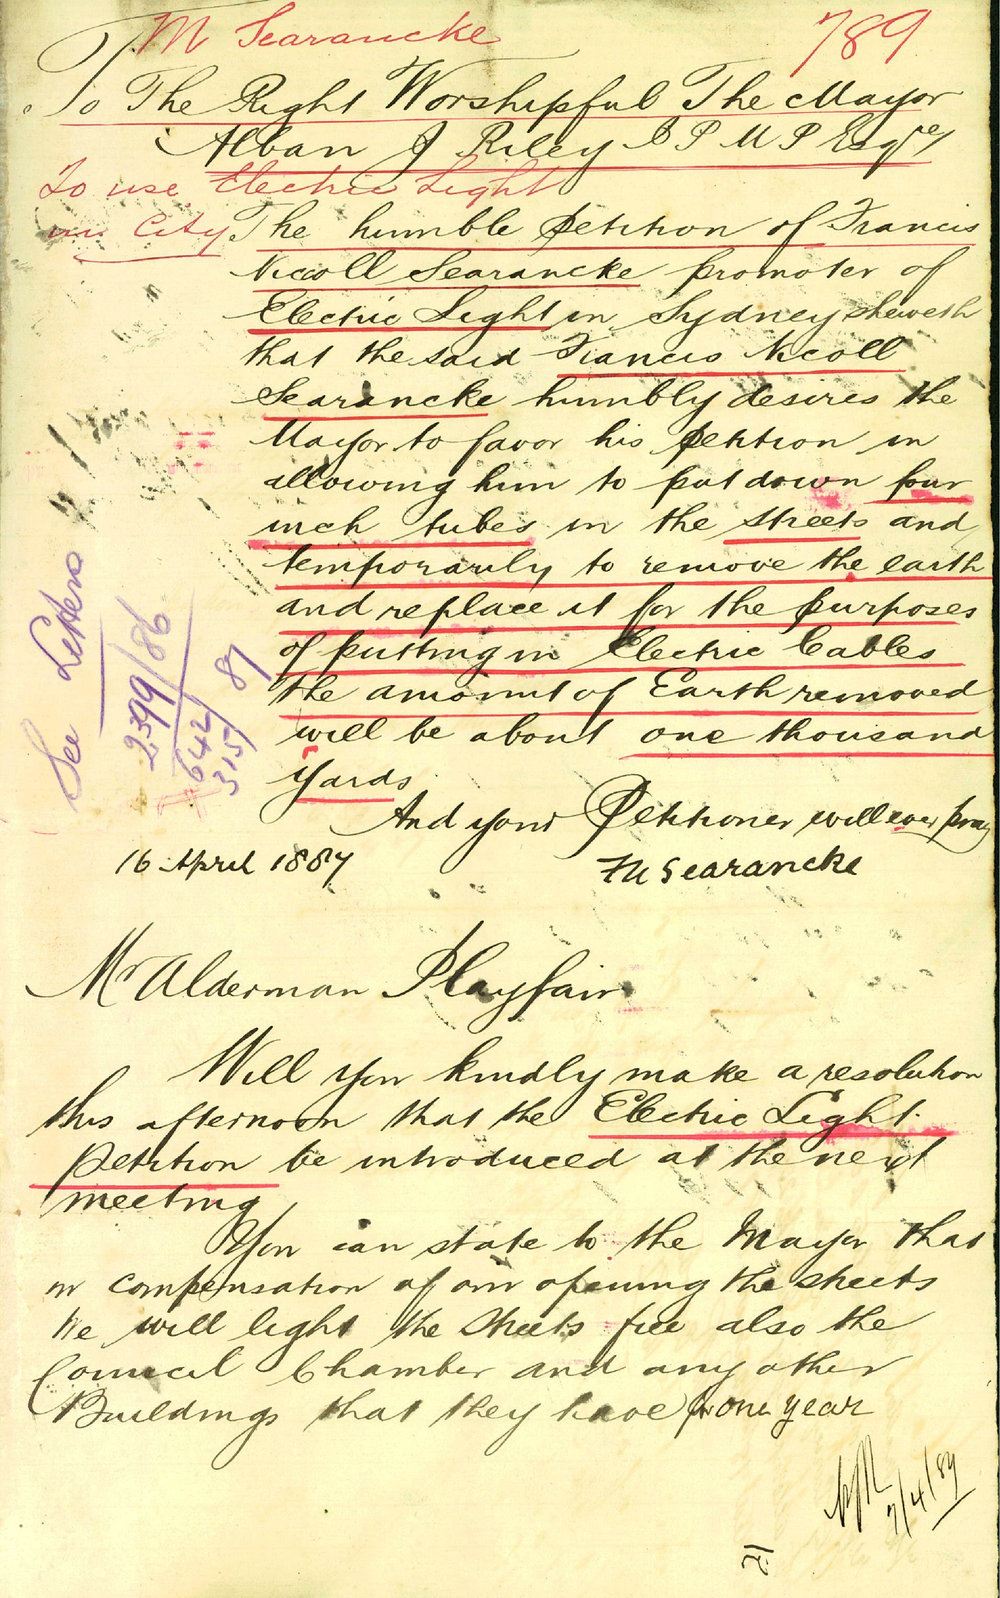 M Searancke
789
To The Right Worshipful The Mayor
Alban J Riley J P M P Esqre
To use Electric Light
in City
The humble Petition of Francis
Nicoll Searancke promoter of
Electric Light in Sydney sheweth
that the said Francis Nicoll
Searancke humbly desires the
Mayor to favor his Petition in
allowing him to put down four
inch tubes in the streets and
temporarily to remove the earth
and replace it for the purposes
of putting in Electric Cables
the amount of Earth removed
will be about one thousand
yards
And your Petitioner will ever pray
16 April 1887
FN Searancke
See Letters
2399/86
642/
315/87
Mr Alderman Playfair
Will you kindly make a resolution
this afternoon that the Electric Light
Petition be introduced at the next
meeting
You can state to the Mayor that
in compensation of our opening the streets
We will light the streets free also the
Council Chamber and any other
Buildings that they have for one year